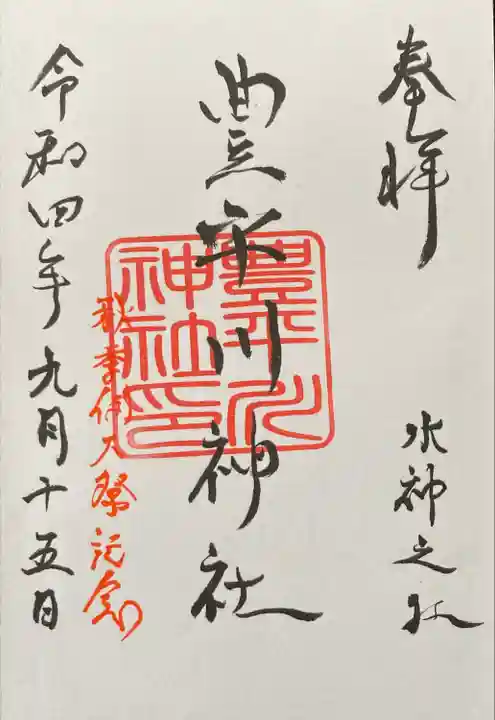 奉拝
水神之社
豊平川神社
豊平川
神社印
秋季例大祭記念
令和四年九月十五日